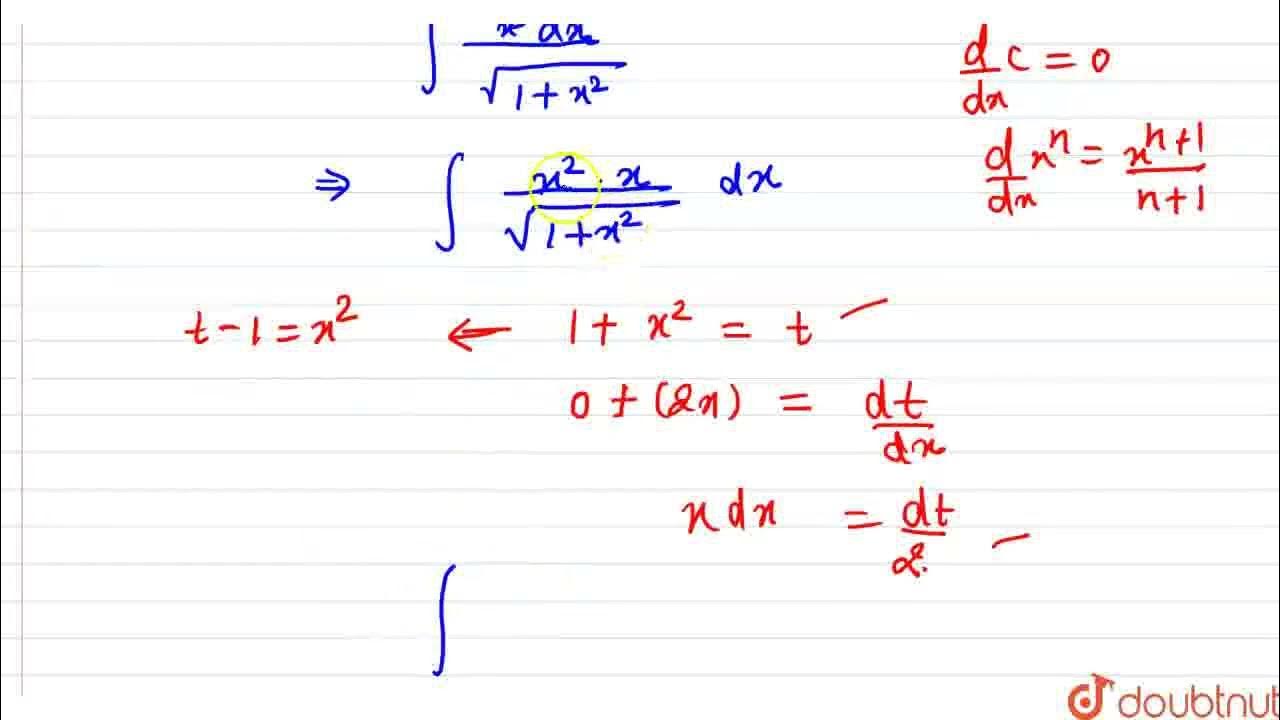 ∫ x dx / √(1 + x²)
d/dx c = 0
⇒ ∫ x² · x / √(1 + x²) dx
d/dx xⁿ = xⁿ⁺¹ / n+1
t - 1 = x² ← 1 + x² = t
0 + (2x) = dt/dx
x dx = dt/2
∫
doubtnut